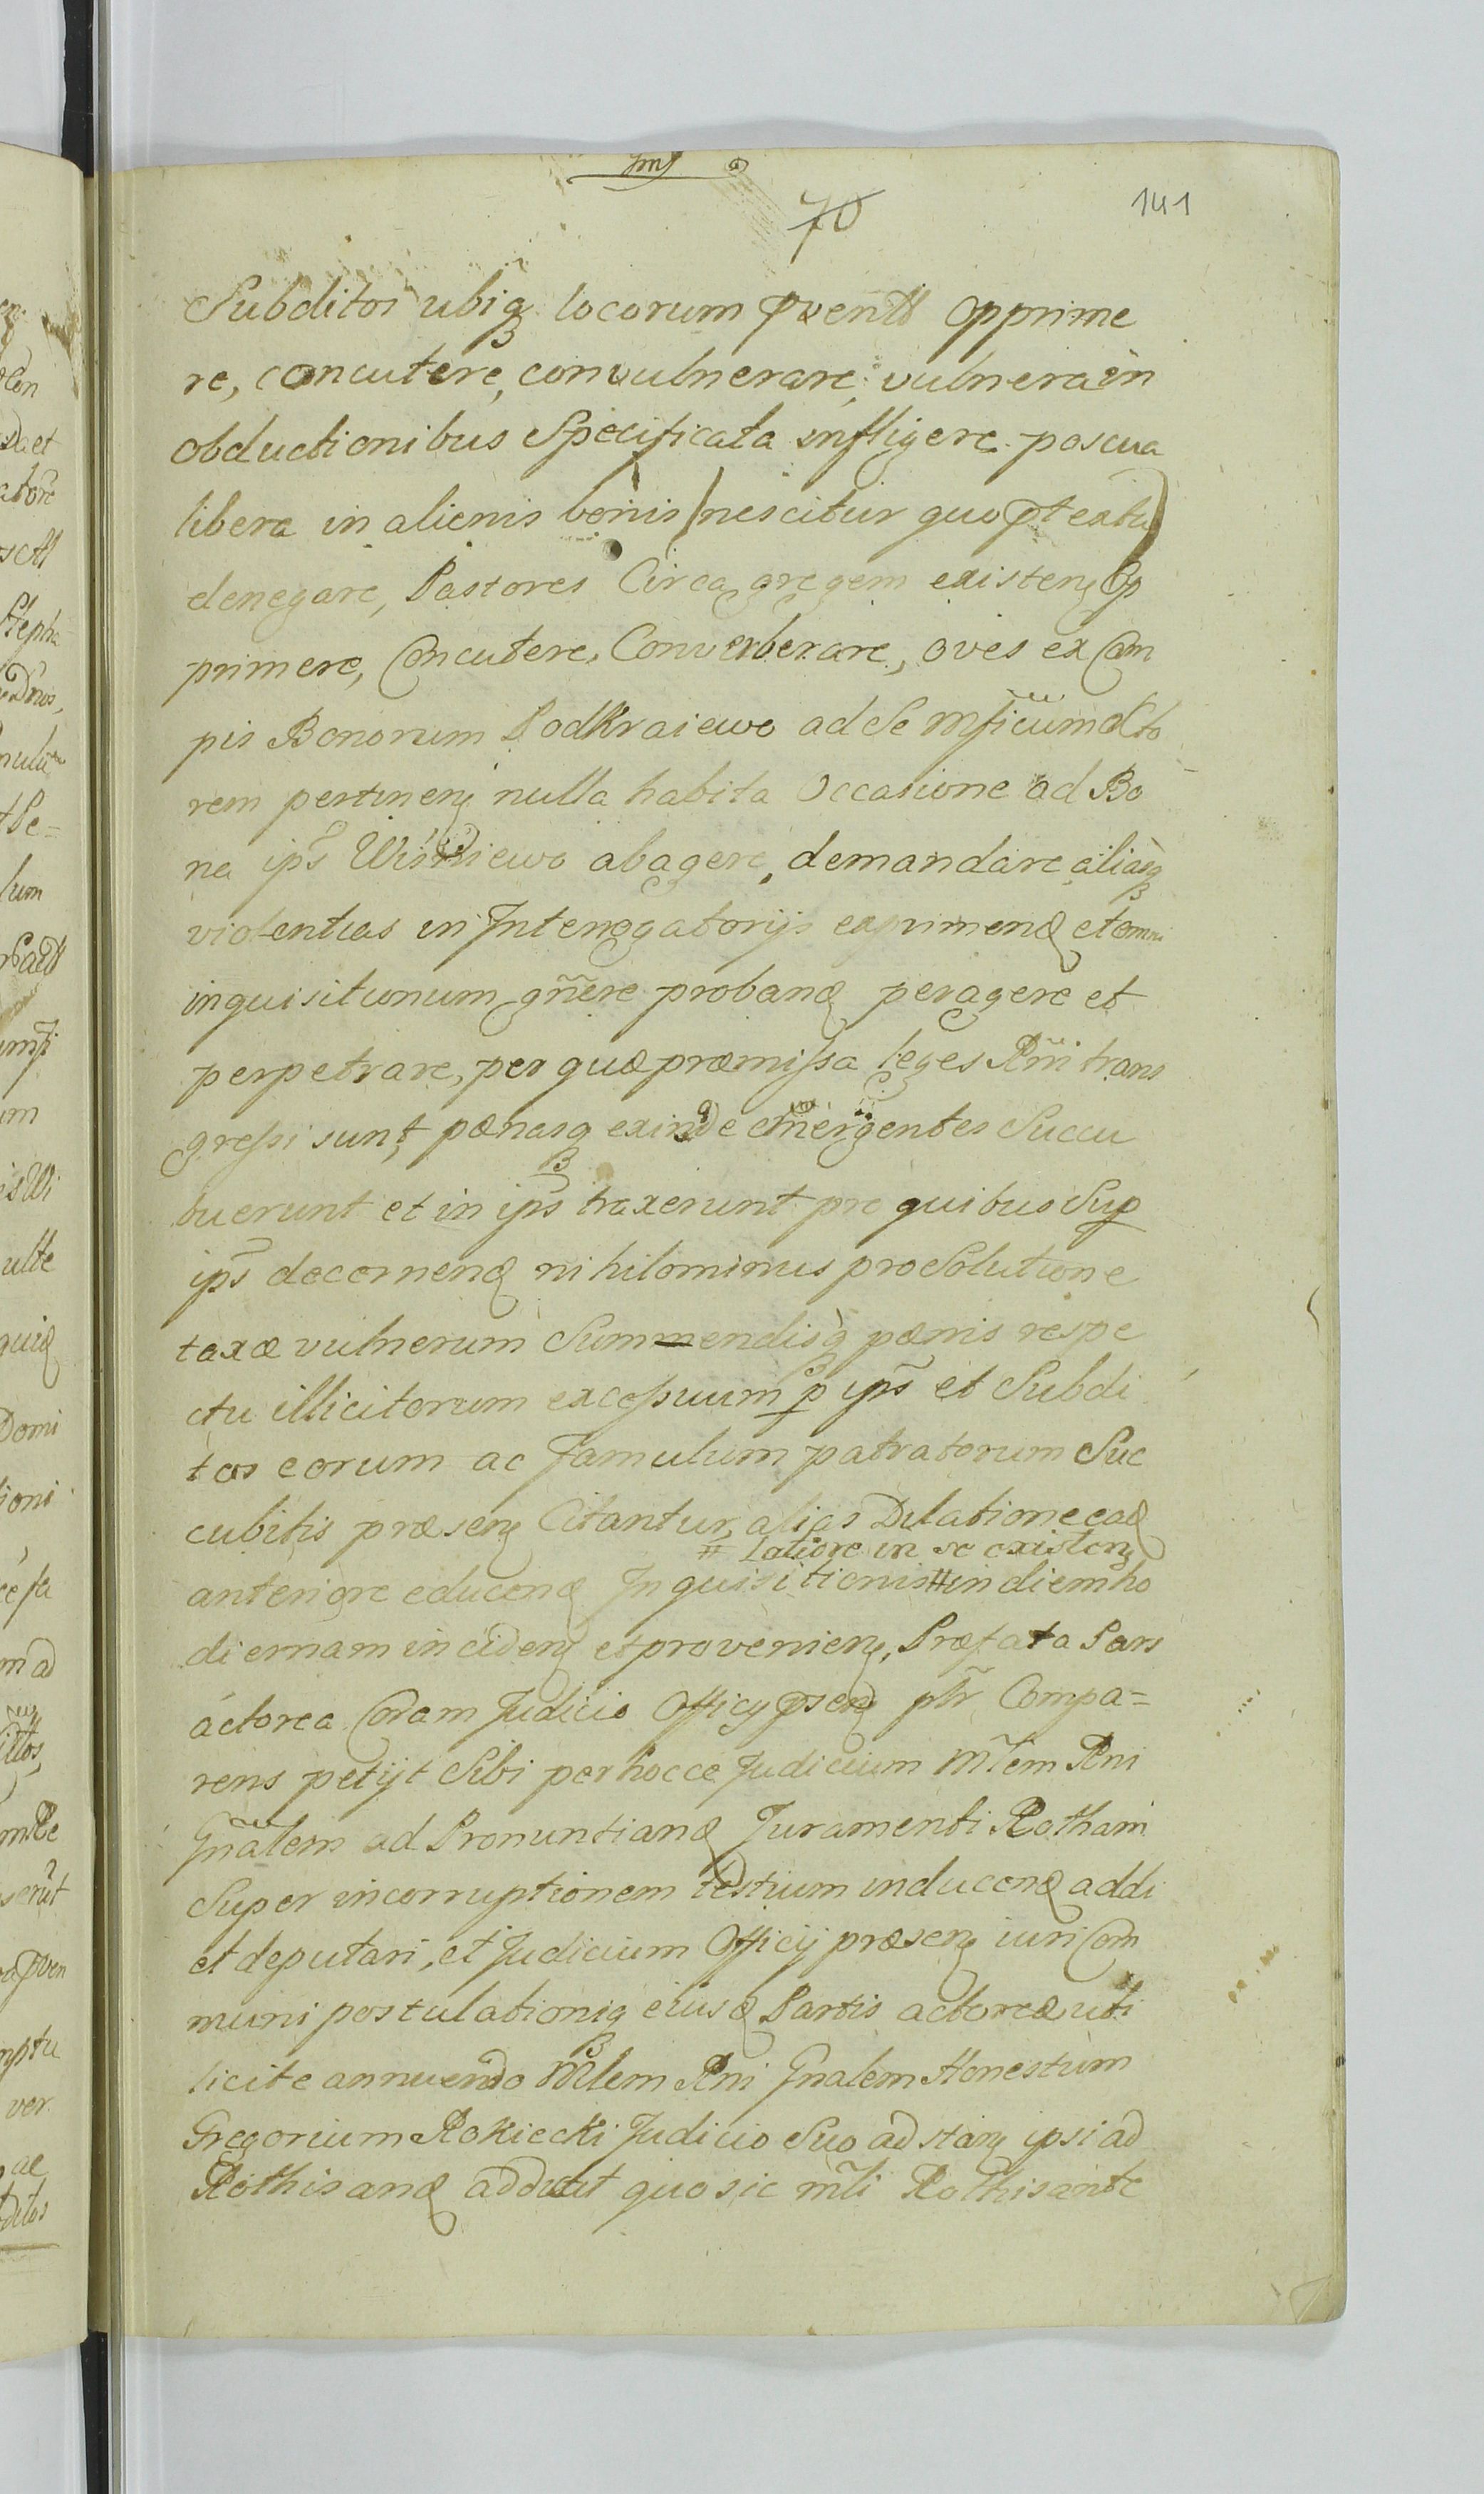 70
141
Subditos ubiq locorum pvents opprime
re, concutere, convulnerare, vulnera in
obductionibus Specificata infligere pascua
libera in alienis bonis (nescitur quo ptextu)
denegare, Pastores Circa gregem existen Op
primere, Concutere, Converberare, oves ex Cam
pis Bonorum Podkraiewo ad Se Mficum Acto
rem pertinen nulla habita Occasione ad Bo
na ips Wisniewo abagere, demandare aliasq
violentias in Interrogatorijs exprimend et omni
inquisitionum gnere proband peragere et
perpetrare, per quæ præmissa leges Rni trans
gressi sunt, pænasq exinde emergentes Succu
buerunt et in ips traxerunt pro quibus Sup
ips decernend nihilominus pro Solutione
taxæ vulnerum Summendisq pænis respe
ctu illicitorum excessuum p ips et Subdi
tos eorum ac famulum patratorum Suc
cubitis præsen Citantur, alias Dilatione ead
# latiore in se existen
anteriore educend Inquisitionis # in diem ho
diernam inciden et provenien, Præfata Pars
actorea Coram Judicio Officy psen ptr Compa=
rens petijt Sibi per hocce Judicium Mtem Rni
Gnalem ad Pronuntiand Juramenti Rotham
Super incorruptionem testium inducend addi
et deputari, et Judicium Officij præsen iuri Com
muni postulationiq eiusd Partis actoreæ uti
licite annuendo Mlem Rni Gnalem Honestum
Gregorium Rokiecki Judicio Suo adstan ipsi ad
Rothisand addidit quo sic mli Rothisante